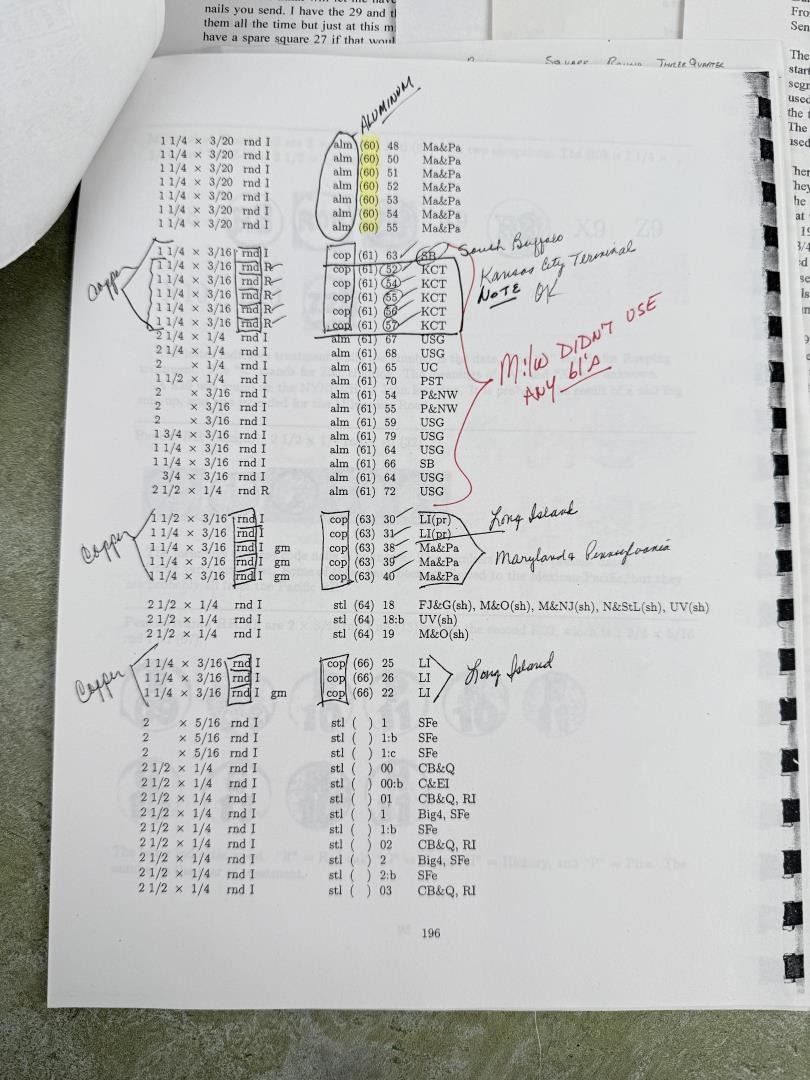 nails you send. I have the 29 and t
them all the time but just at this m
have a spare square 27 if that woul
Square Round Three Quarter
Fro
Sen
The
start
segn
used
the
The
used
ALUMINUM
1 1/4 × 3/20 rnd I alm (60) 48 Ma&Pa
1 1/4 × 3/20 rnd I alm (60) 50 Ma&Pa
1 1/4 × 3/20 rnd I alm (60) 51 Ma&Pa
1 1/4 × 3/20 rnd I alm (60) 52 Ma&Pa
1 1/4 × 3/20 rnd I alm (60) 53 Ma&Pa
1 1/4 × 3/20 rnd I alm (60) 54 Ma&Pa
1 1/4 × 3/20 rnd I alm (60) 55 Ma&Pa
Copper
1 1/4 × 3/16 rnd I cop (61) 63 SB South Buffalo
1 1/4 × 3/16 rnd R cop (61) 52 KCT Kansas City Terminal
1 1/4 × 3/16 rnd R cop (61) 54 KCT NOTE OK
1 1/4 × 3/16 rnd R cop (61) 55 KCT
1 1/4 × 3/16 rnd R cop (61) 56 KCT
1 1/4 × 3/16 rnd R cop (61) 57 KCT
2 1/4 × 1/4 rnd I alm (61) 67 USG
2 1/4 × 1/4 rnd I alm (61) 68 USG
2 × 1/4 rnd I alm (61) 65 UC
1 1/2 × 1/4 rnd I alm (61) 70 PST
2 × 3/16 rnd I alm (61) 54 P&NW
2 × 3/16 rnd I alm (61) 55 P&NW
2 × 3/16 rnd I alm (61) 59 USG
1 3/4 × 3/16 rnd I alm (61) 79 USG
1 1/4 × 3/16 rnd I alm (61) 64 USG
1 1/4 × 3/16 rnd I alm (61) 66 SB
3/4 × 3/16 rnd I alm (61) 64 USG
2 1/2 × 1/4 rnd R alm (61) 72 USG
Milw DIDN'T USE
ANY 61's
Copper
1 1/2 × 3/16 rnd I cop (63) 30 LI(pr) Long Island
1 1/4 × 3/16 rnd I cop (63) 31 LI(pr)
1 1/4 × 3/16 rnd I gm cop (63) 38 Ma&Pa Maryland & Pennsylvania
1 1/4 × 3/16 rnd I gm cop (63) 39 Ma&Pa
1 1/4 × 3/16 rnd I gm cop (63) 40 Ma&Pa
2 1/2 × 1/4 rnd I stl (64) 18 FJ&G(sh), M&O(sh), M&NJ(sh), N&StL(sh), UV(sh)
2 1/2 × 1/4 rnd I stl (64) 18:b UV(sh)
2 1/2 × 1/4 rnd I stl (64) 19 M&O(sh)
Copper
1 1/4 × 3/16 rnd I cop (66) 25 LI Long Island
1 1/4 × 3/16 rnd I cop (66) 26 LI
1 1/4 × 3/16 rnd I gm cop (66) 22 LI
2 × 5/16 rnd I stl ( ) 1 SFe
2 × 5/16 rnd I stl ( ) 1:b SFe
2 × 5/16 rnd I stl ( ) 1:c SFe
2 1/2 × 1/4 rnd I stl ( ) 00 CB&Q
2 1/2 × 1/4 rnd I stl ( ) 00:b C&EI
2 1/2 × 1/4 rnd I stl ( ) 01 CB&Q, RI
2 1/2 × 1/4 rnd I stl ( ) 1 Big4, SFe
2 1/2 × 1/4 rnd I stl ( ) 1:b SFe
2 1/2 × 1/4 rnd I stl ( ) 02 CB&Q, RI
2 1/2 × 1/4 rnd I stl ( ) 2 Big4, SFe
2 1/2 × 1/4 rnd I stl ( ) 2:b SFe
2 1/2 × 1/4 rnd I stl ( ) 03 CB&Q, RI
196